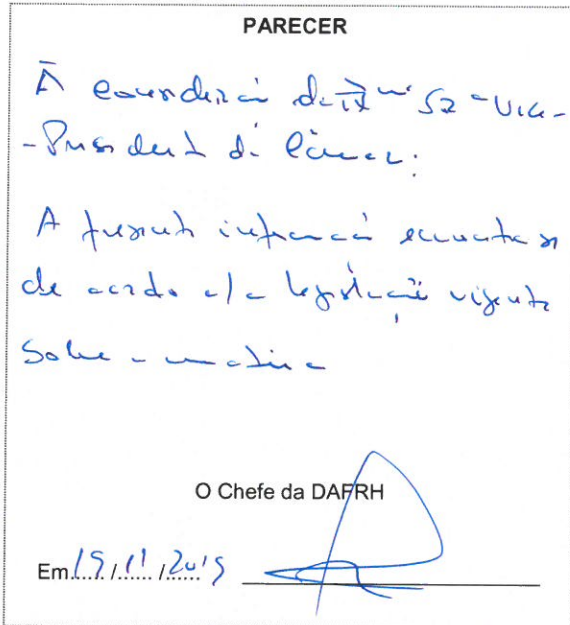 PARECER
À consideração da Exmª Srª Vice-
-Presidente da Câmara:
A presente informação encontra-se
de acordo c/ a legislação vigente
sobre a matéria
O Chefe da DAFRH
Em 15/11/2019